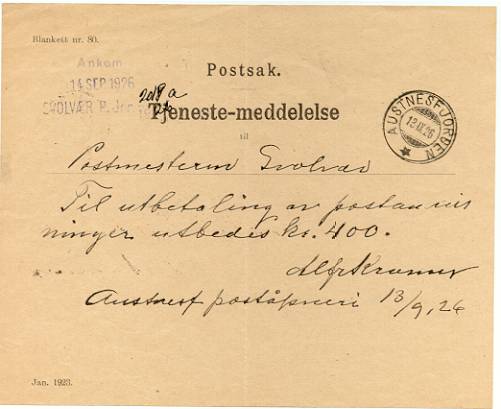 Blankett nr. 80.
Ankom
14 SEP 1926
SVOLVÆR P.
Postsak.
Tjeneste-meddelelse
til
AUSTNESFJORDEN
13 IX 26
Postmesteren Svolvær
Til utbetaling av postanvis
ninger utbedes kr. 400.
Alf Kramer
Austnesf poståpneri 13/9, 26
Jan. 1923.